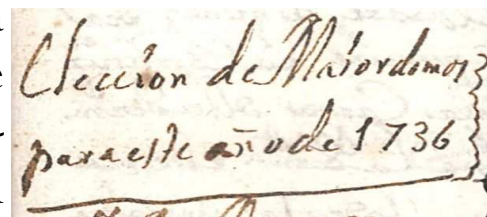 Eleccion de Maiordomos
para este año de 1736